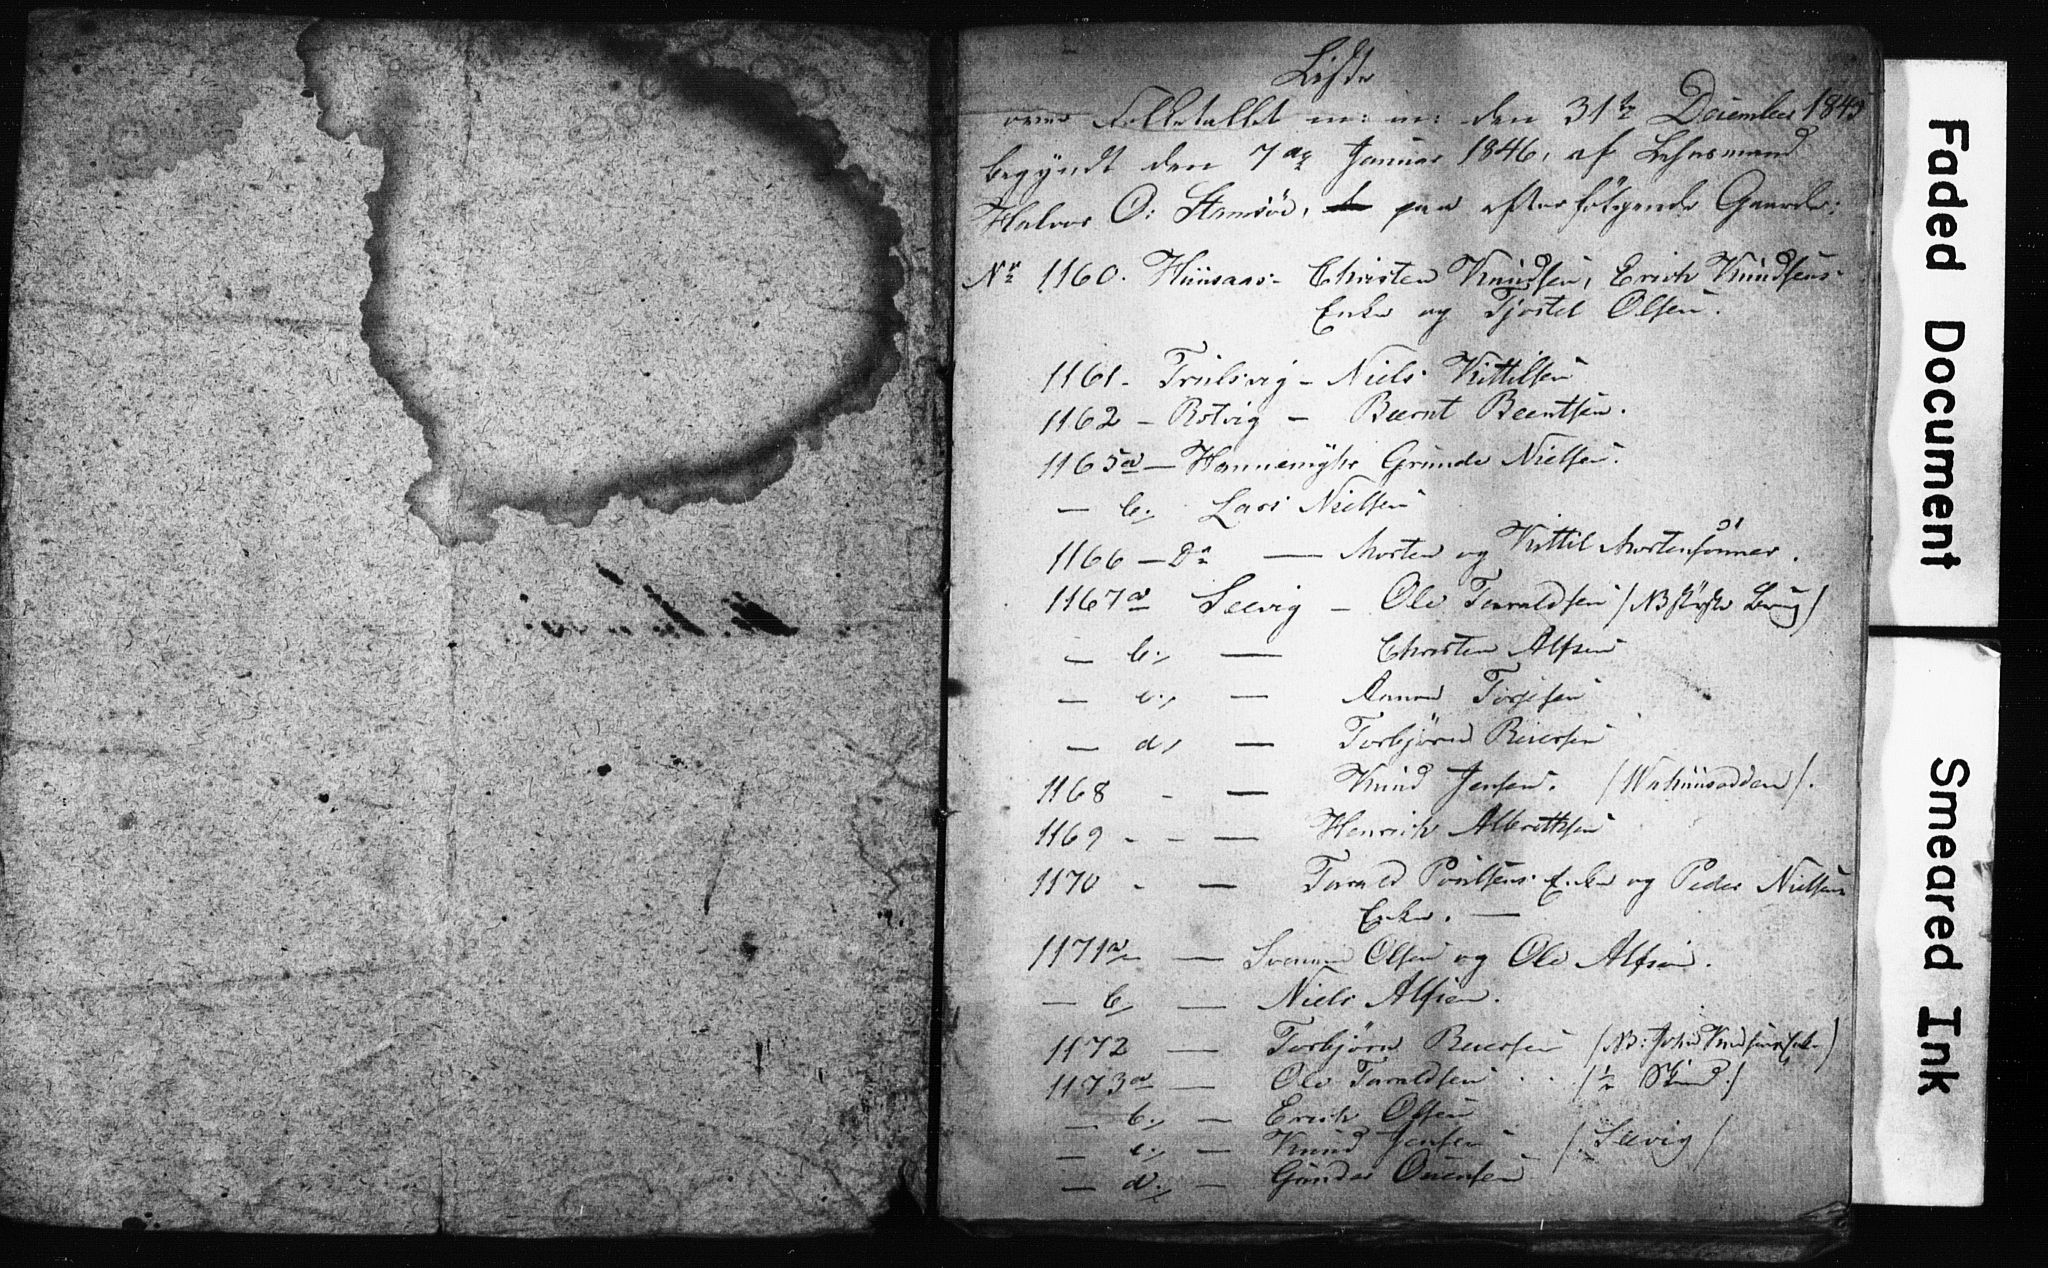 Liste
over Folketallet m: m: den 31te December 1845
begyndt den 7de Januar 1846, af Lehnsmand
Halvor O: Stamsöe, paa efterfölgende Gaarde:
No 1160. Huusaas - Christen Knudsen, Erich Knudsens
Enke og Tjostel Olsen.
1161 - Trulsvig - Niels Kittilsen
1162 - Rotvig - Beernt Beentsen.
1165a - Hannemyhr Grunde Nielsen.
- b, Lars Nielsen
1166 - Do - Morten og Kittil Mortensönner.
1167a Seevig - Ole Taraldsen / NB störste Brug /
- b, - Christen Alfsen
- c, - Anna Terjesen
- d, - Torbjörn Reiersen
1168 - - Knud Jensen.
1169 - - - Henrich Albrethsen
1170 - - Tarald Poulsens Enke og Peder Nielsens
Enke. -
1171a - Svenum Olsen og Ole Alfsen.
- b, - Niels Alfsen.
1172 - Torbjörn Reiersen / NB: John Knudsens Enke /
1173a - Ole Taraldsen . . / ½ Skind /
- b, - Erich Olsen
- c, - Knud Jensen - / Seevig /
- d, - Gunder Ouensen
Faded Document
Smeared Ink